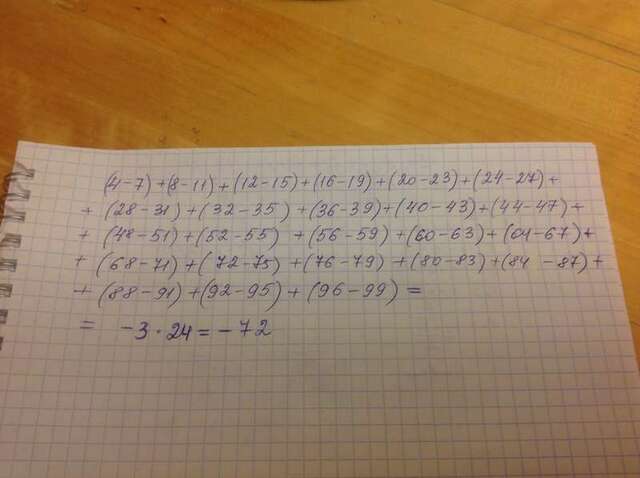 (4-7)+(8-11)+(12-15)+(16-19)+(20-23)+(24-27)+
+(28-31)+(32-35)+(36-39)+(40-43)+(44-47)+
+(48-51)+(52-55)+(56-59)+(60-63)+(64-67)+
+(68-71)+(72-75)+(76-79)+(80-83)+(84-87)+
+(88-91)+(92-95)+(96-99)=
= -3·24=-72